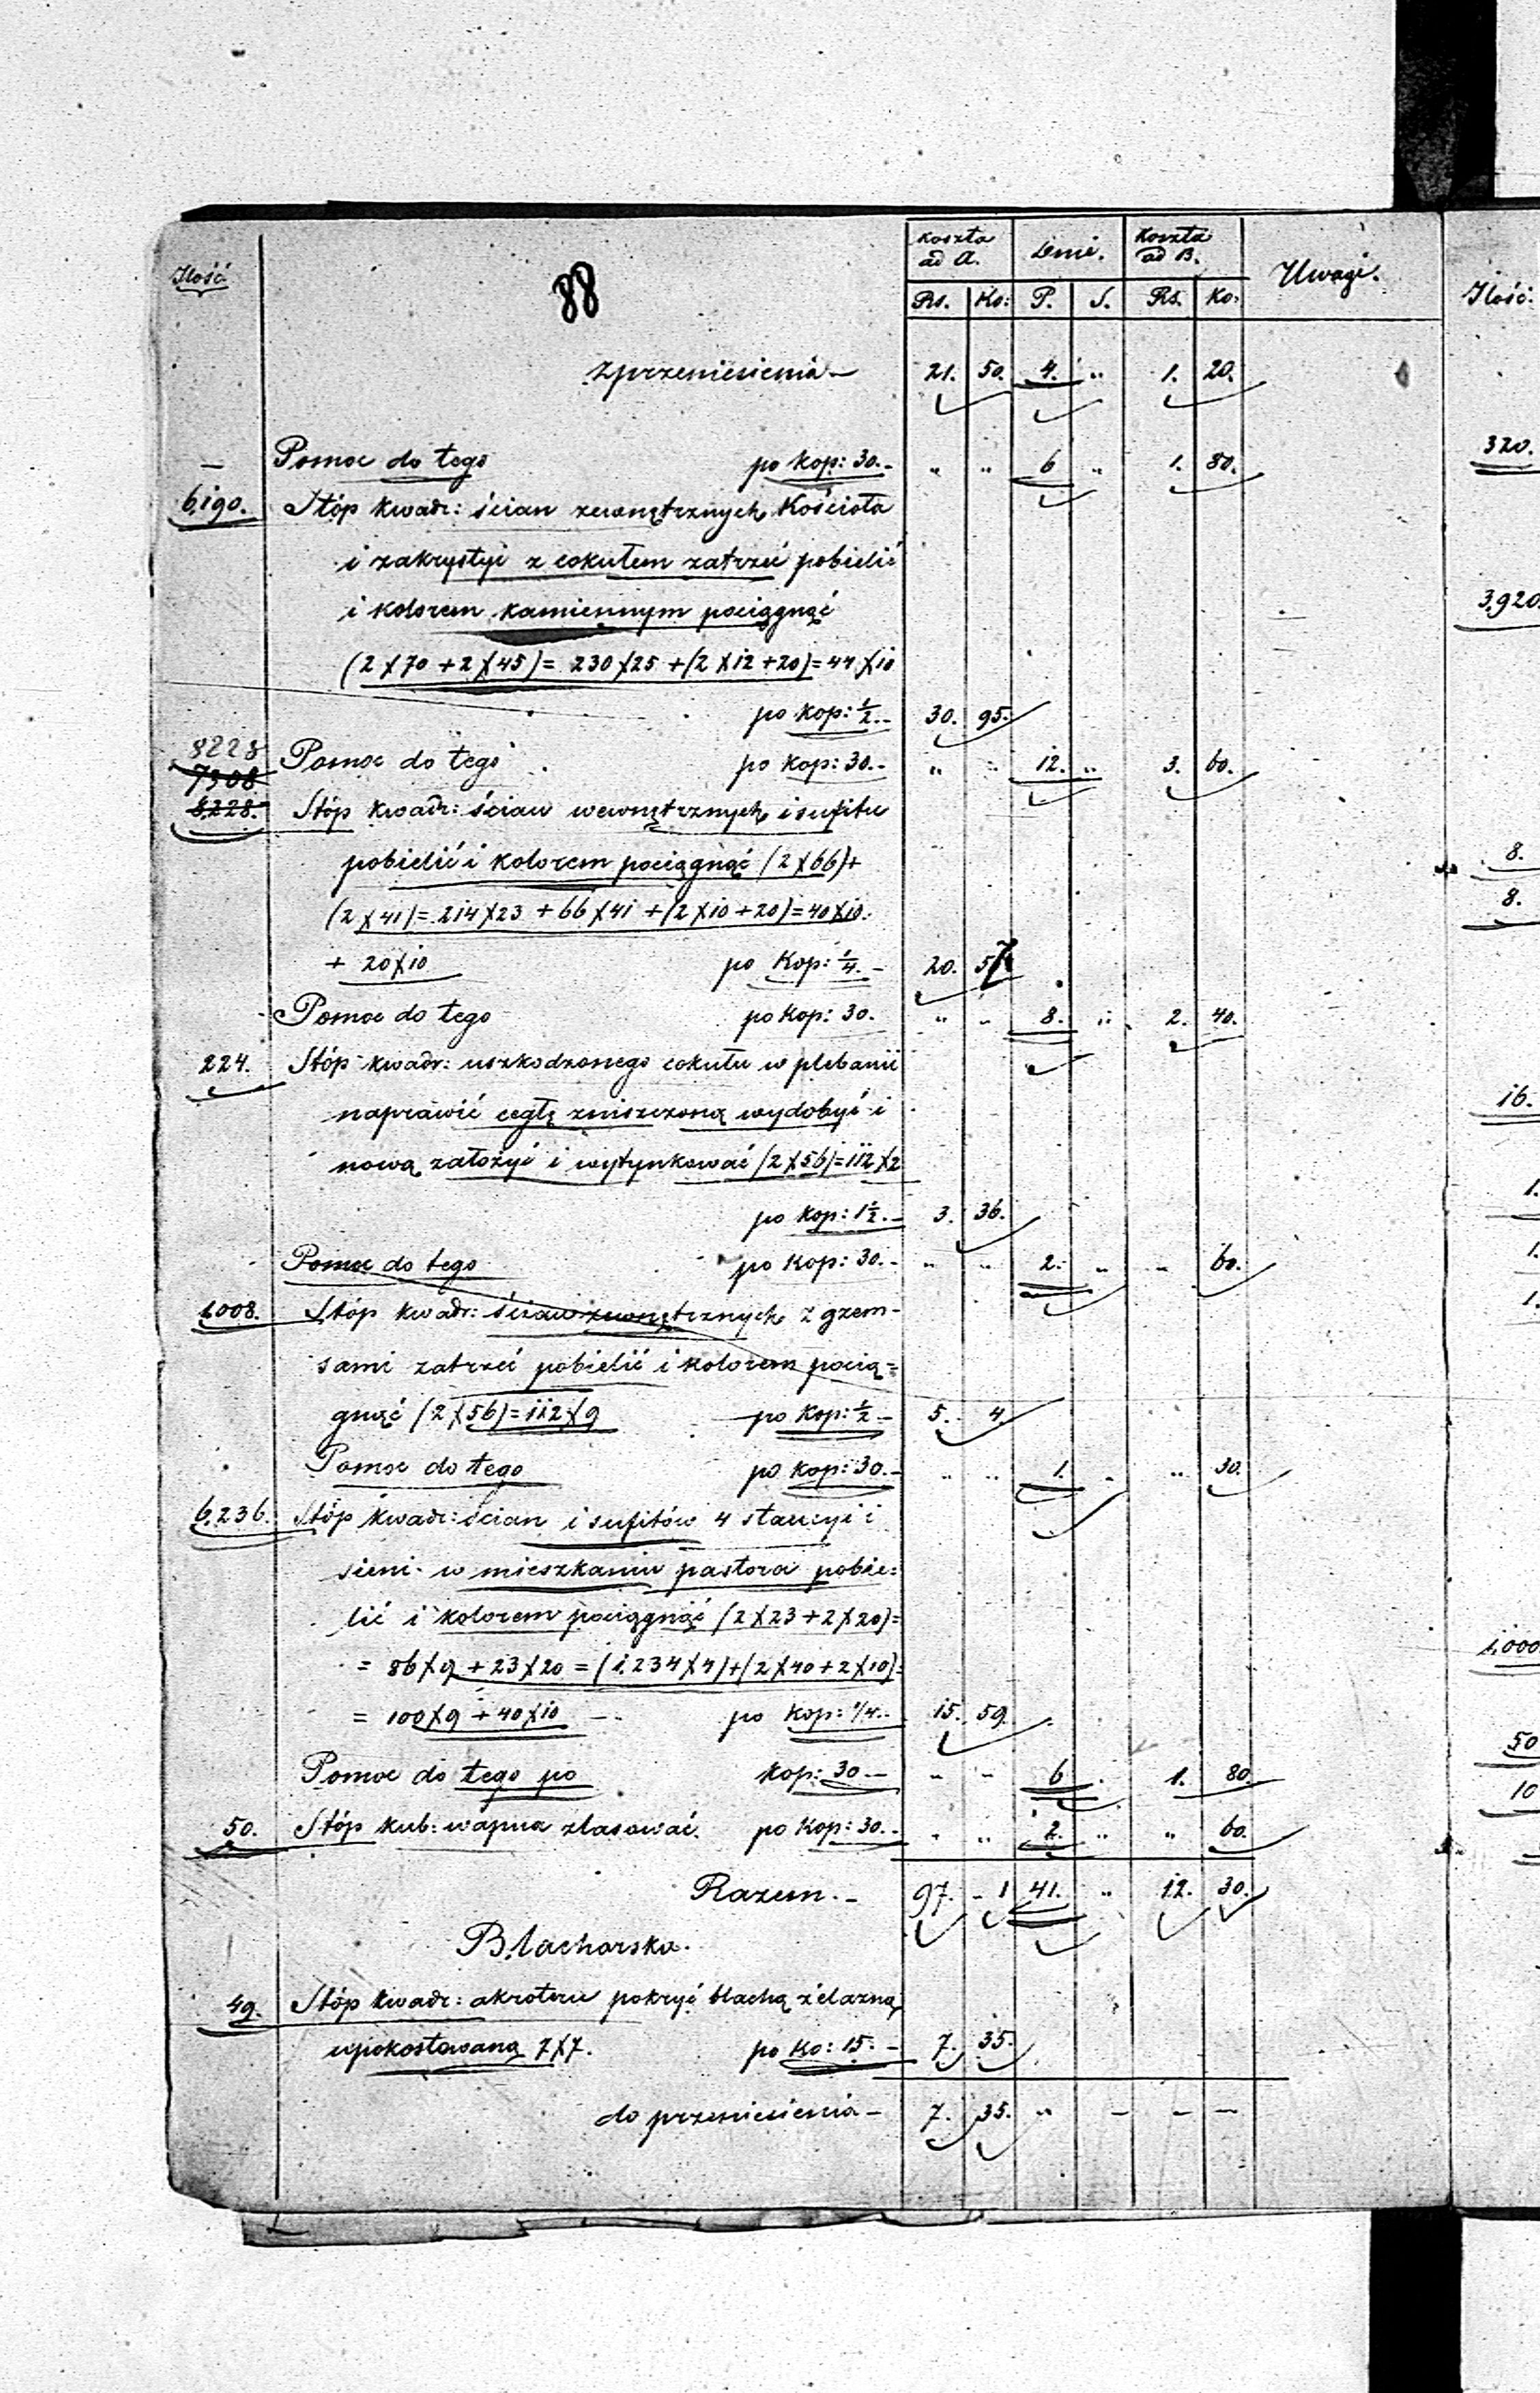 Ilość.
88
Koszta ad A.
Dnie.
Koszta ad B.
Uwagi.
Rs. Ko: P. S. Rs. Ko:
Z przeniesienia — 21. 50. 4. " 1. 20.
— Pomoc do tego po kop: 30. - " " 6 " 1. 80.
6,190. Stóp kwadr: ścian zewnętrznych Kościoła
i zakrystyi z cokułem zatrzeć pobielić
i kolorem kamiennym pociągnąć
(2 X 70 + 2 X 45) = 230 X 25 + (2 X 12 + 20) = 44 X 10
po kop: 1/2. - 30. 95.
8228
Pomoc do tego po kop: 30. - " " 12. " 3. 60.
7308
8228. Stóp kwadr: ścian wewnętrznych i sufitu
pobielić i kolorem pociągnąć (2 X 66) +
(2 X 41) = 214 X 23 + 66 X 41 + (2 X 10 + 20) = 40 X 10.
+ 20 X 10 po Kop: 1/4. - 20. 57
Pomoc do tego po kop: 30. " " 8. " 2. 40.
224. Stóp kwadr: uszkodzonego cokułu w plebanii
naprawić cegłę zniszczoną wydobyć i
nową założyć i wytynkować (2 X 56) = 112 X 2
po kop: 1 1/2. - 3. 36.
Pomoc do tego po kop: 30. - " " 2. " " 60.
1.008. Stóp kwadr: ścian zewnętrznych z gzem-
sami zatrzeć pobielić i kolorem pocią=
gnąć (2 X 56) = 112 X 9 po kop: 1/2 - 5. 4.
Pomoc do tego po kop: 30. - " " 1. " " 30.
6.236. Stóp kwadr: ścian i sufitów 4 stancyi i
sieni w mieszkaniu pastora pobie=
lić i kolorem pociągnąć (2 X 23 + 2 X 20) =
= 86 X 9 + 23 X 20 = (1.234 X 4) + (2 X 40 + 2 X 10) =
= 100 X 9 + 40 X 10 — po kop: 1/4. 15. 59.
Pomoc do tego po kop: 30 — " " 6 . 1. 80.
50. Stóp kub: wapna zlasować. po kop: 30. - " " 2. " " 60.
Razem. - 97. - 1 41. " 12. 30.
Blacharska.
49. Stóp kwadr: akroteru pokryć blachą żelazną
upokostowaną 7 X 7. po ko: 15. - 7. 35.
do przeniesienia — 7. 35. " — — —
Ilość:
320.
3,920.
8.
8.
16.
1.
1.
1.
1,000
50
10